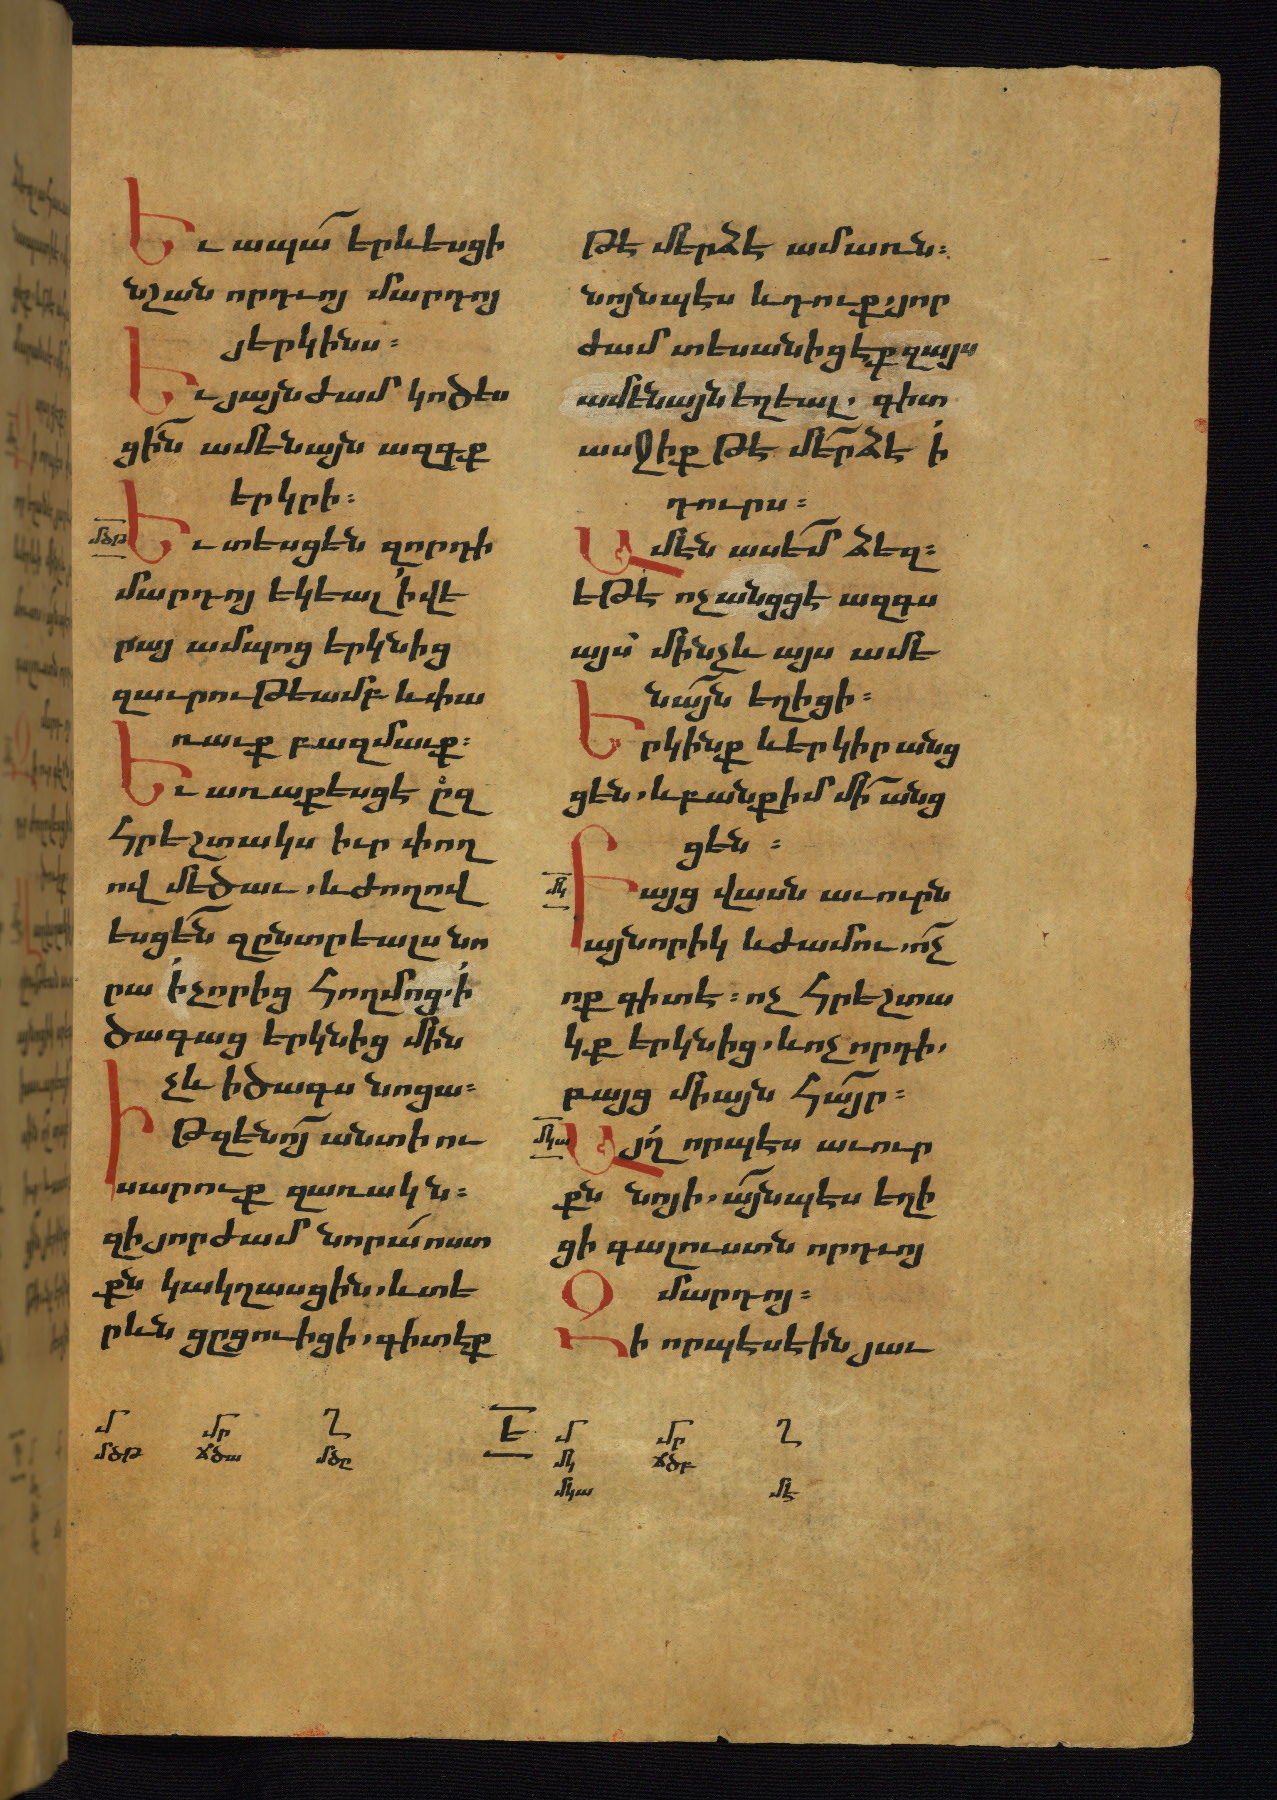 Եւ ապա երևեսցի
նշան որդւոյ մարդոյ
յերկինս։
Եւ յայնժամ կոծես
ցին ամենայն ազգք
երկրի։
մծթ
Եւ տեսցեն զորդի
մարդոյ եկեալ ի վե
րայ ամպոց երկնից
զաւրութեամբ և փա
ռաւք բազմաւք։
Եւ առաքեսցէ ըզ
հրեշտակս իւր փող
ով մեծաւ, և ժողով
եսցեն զընտրեալս նո
րա ի չորից հողմոց, ի
ծագաց երկնից մին
չև ի ծագս նոցա։
Ի թզենոյ անտի ու
սարուք զառակն։
զի յորժամ նորա ոստ
քն կակղասցին, և տե
րևն ցըցուիցի, գիտէք
թէ մերձ է ամառն։
նոյնպէս և դուք, յոր
ժամ տեսանիցէք զայս
ամենայն եղեալ, գիտ
ասջիք թէ մերձ է ի
դուրս։
Ամէն ասեմ ձեզ։
եթէ ոչ անցցէ ազգս
այս մինչև այս ամե
նայն եղիցի։
Երկինք և երկիր անց
ցեն, և բանք իմ մի անց
ցեն։
մկ
Բայց վասն աւուրն
այնորիկ և ժամու, ոչ
ոք գիտէ։ ոչ հրեշտա
կք երկնից, և ոչ որդի,
բայց միայն հայր։
մկա
Այղ որպէս աւուր
քն նոյի, այնպէս եղի
ցի գալուստն որդւոյ
մարդոյ։
Զի որպէս էին յաւ
մ մր Ղ
մծթ ճծա մծը
Է
մ մր Ղ
մկ ճծբ
մկա մէ